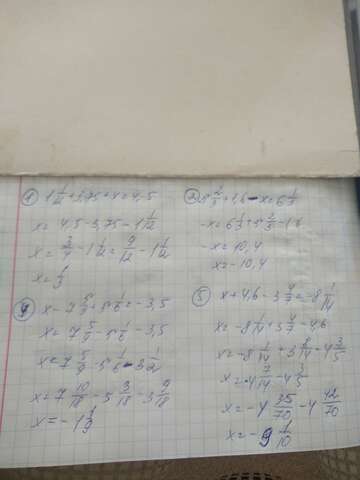 1) 1 1/12 + 3,75 + x = 4,5
x = 4,5 - 3,75 - 1 1/12
x = 3/4 - 1 1/12 = 9/12 - 1 1/12
x = 1/3
- x = 10,4
x = - 10,4
4) x - 7 5/9 + 5 1/6 = - 3,5
x = 7 5/9 - 5 1/6 - 3,5
x = 7 5/9 - 5 1/6 - 3 1/2
x = 7 10/18 - 5 3/18 - 3 9/18
x = - 1 1/9
5) x + 4,6 - 3 4/7 = - 8 1/14
x = - 8 1/14 + 3 4/7 - 4,6
x = - 8 1/14 + 3 8/14 - 4 3/5
x = - 4 7/14 - 4 3/5
x = - 4 35/70 - 4 42/70
x = - 9 1/10